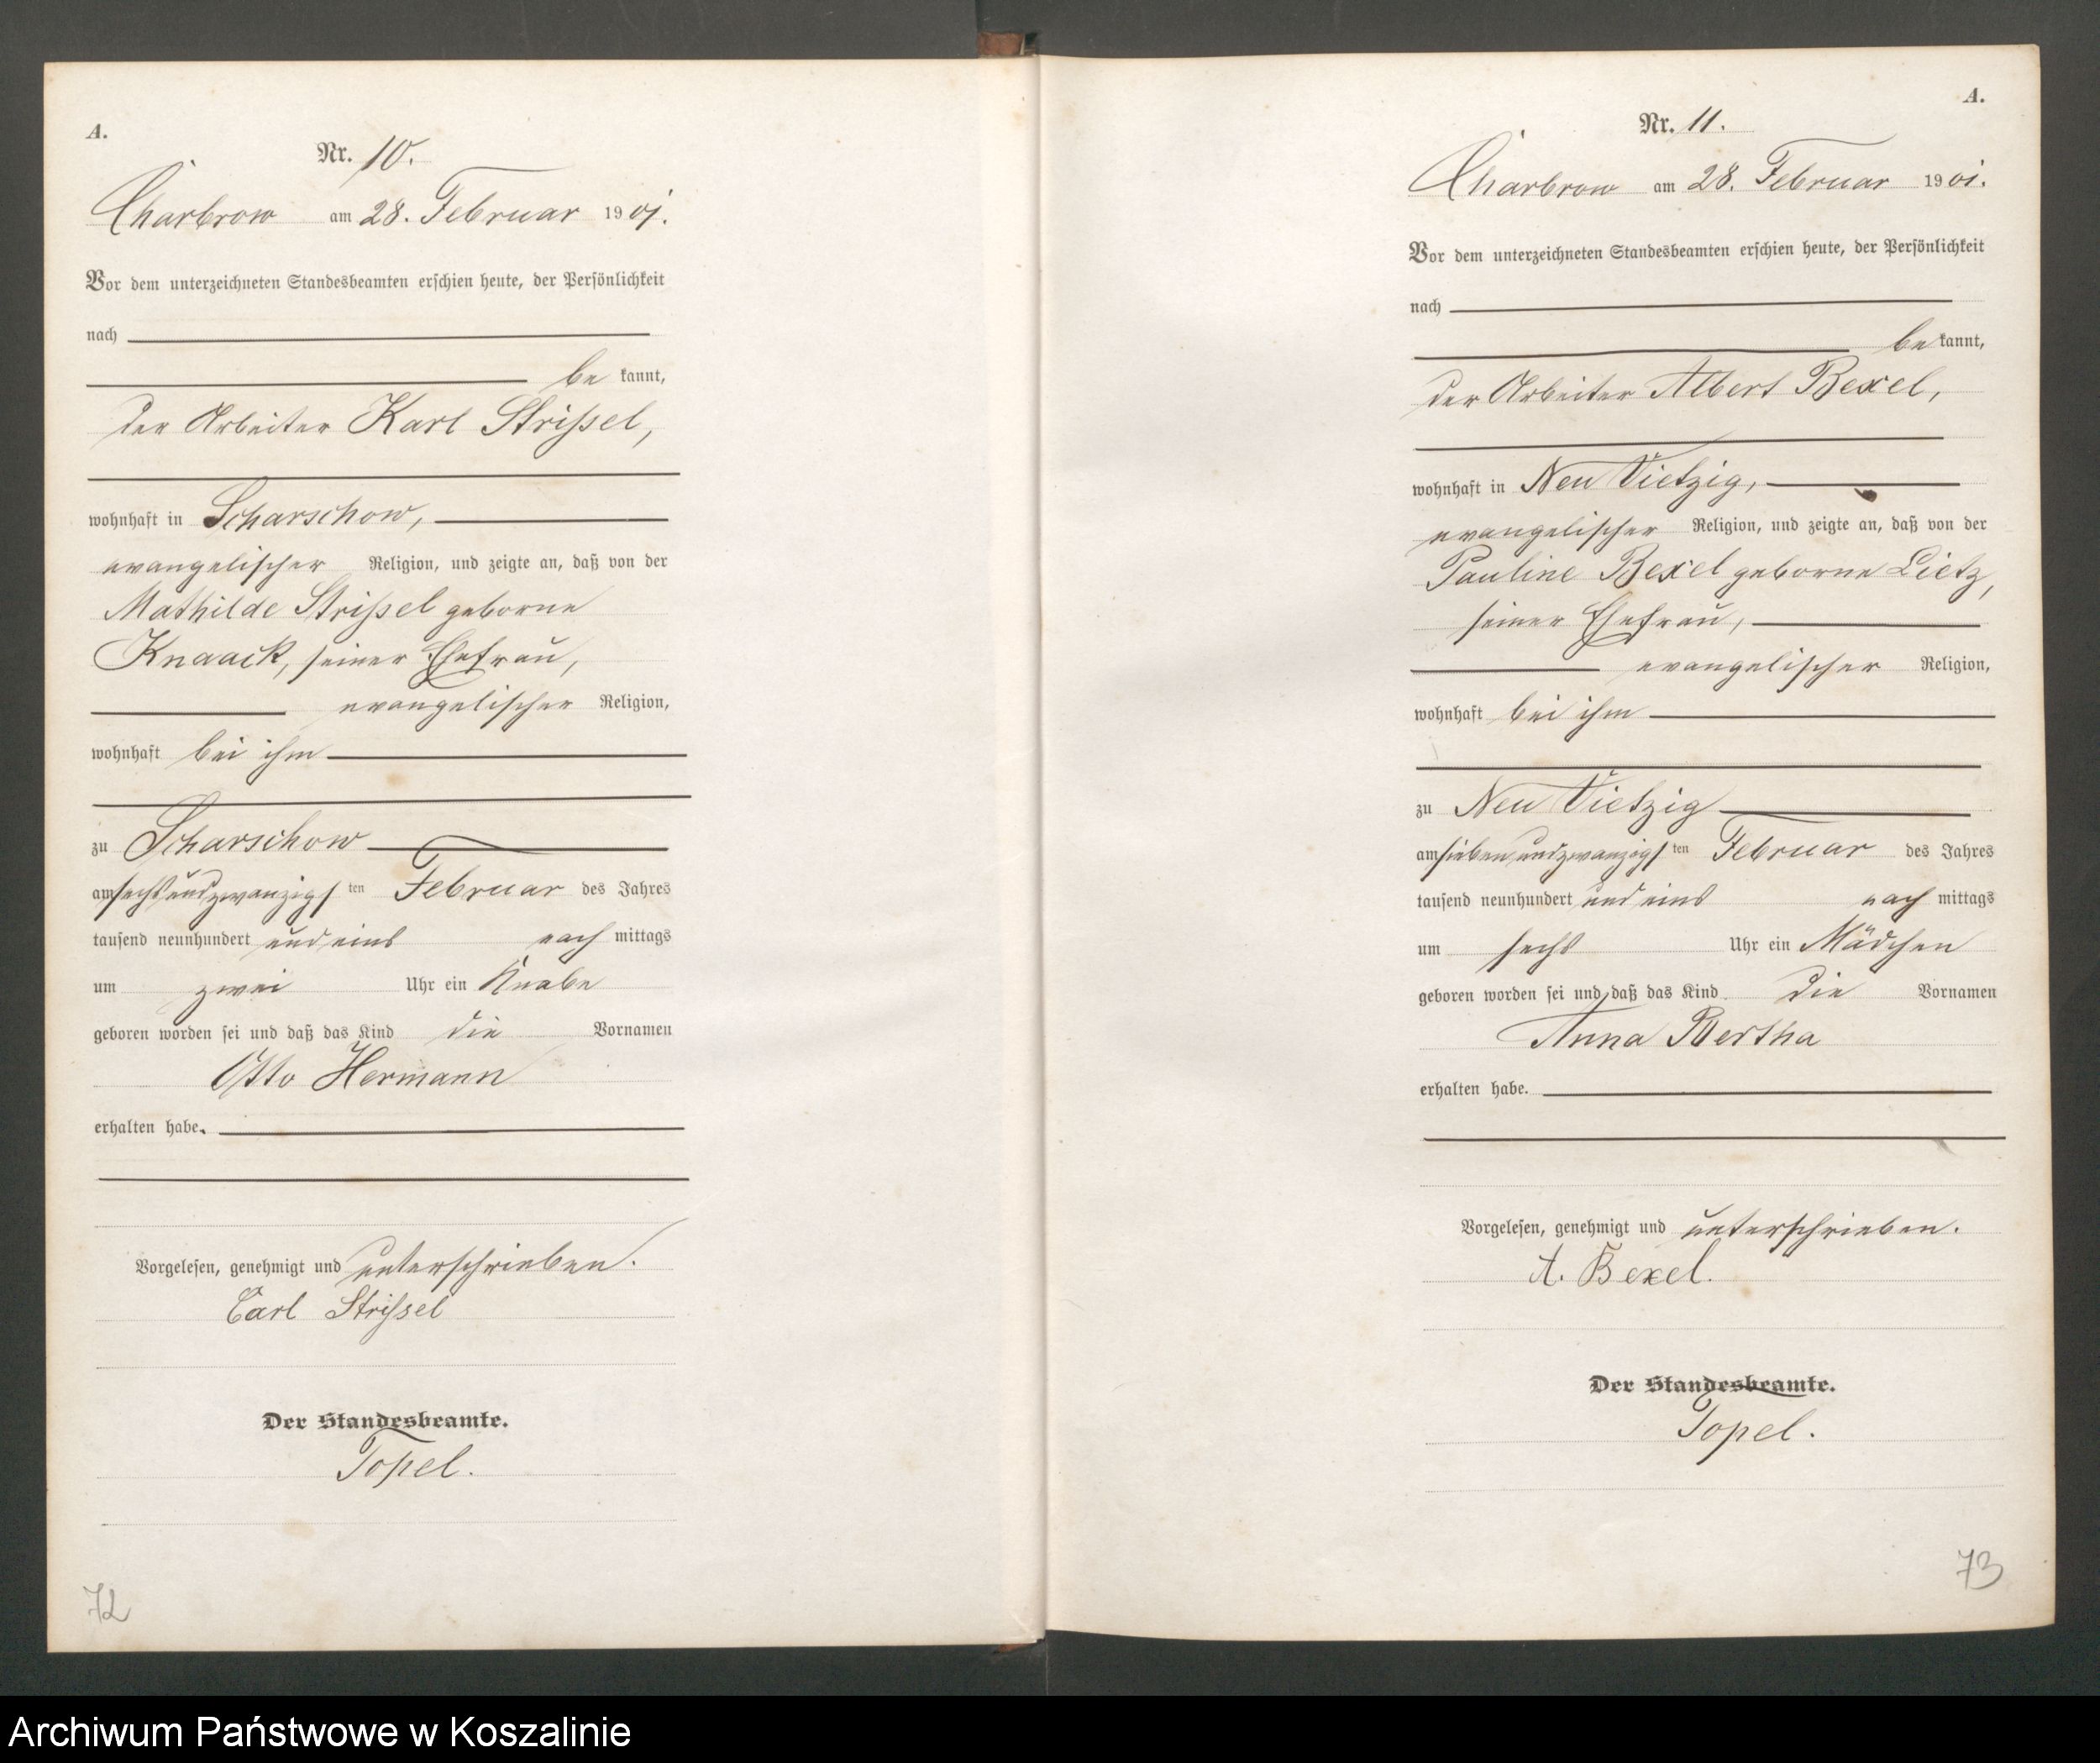 A.
Nr. 10.
Charbrow am 28. Februar 1901.
Vor dem unterzeichneten Standesbeamten erschien heute, der Persönlichkeit
nach
be kannt,
der Arbeiter Karl Strissel,
wohnhaft in Scharschow,
evangelischer Religion, und zeigte an, daß von der
Mathilde Strissel geborne
Knaack, seiner Ehefrau,
evangelischer Religion,
wohnhaft bei ihm
zu Scharschow
am sechsundzwanzigsten Februar des Jahres
tausend neunhundert und eins nach mittags
um zwei Uhr ein Knabe
geboren worden sei und daß das Kind die Vornamen
Otto Hermann
erhalten habe.
Vorgelesen, genehmigt und unterschrieben.
Carl Strissel
Der Standesbeamte.
Topel.
72
A.
Nr. 11.
Charbrow am 28. Februar 1901.
Vor dem unterzeichneten Standesbeamten erschien heute, der Persönlichkeit
nach
be kannt,
der Arbeiter Albert Bexel,
wohnhaft in Neu Vietzig,
evangelischer Religion, und zeigte an, daß von der
Pauline Bexel geborne Lietz,
seiner Ehefrau,
evangelischer Religion,
wohnhaft bei ihm
zu Neu Vietzig
am siebenundzwanzigsten Februar des Jahres
tausend neunhundert und eins nach mittags
um sechs Uhr ein Mädchen
geboren worden sei und daß das Kind die Vornamen
Anna Bertha
erhalten habe.
Vorgelesen, genehmigt und unterschrieben.
A. Bexel.
Der Standesbeamte.
Topel.
73
Archiwum Państwowe w Koszalinie